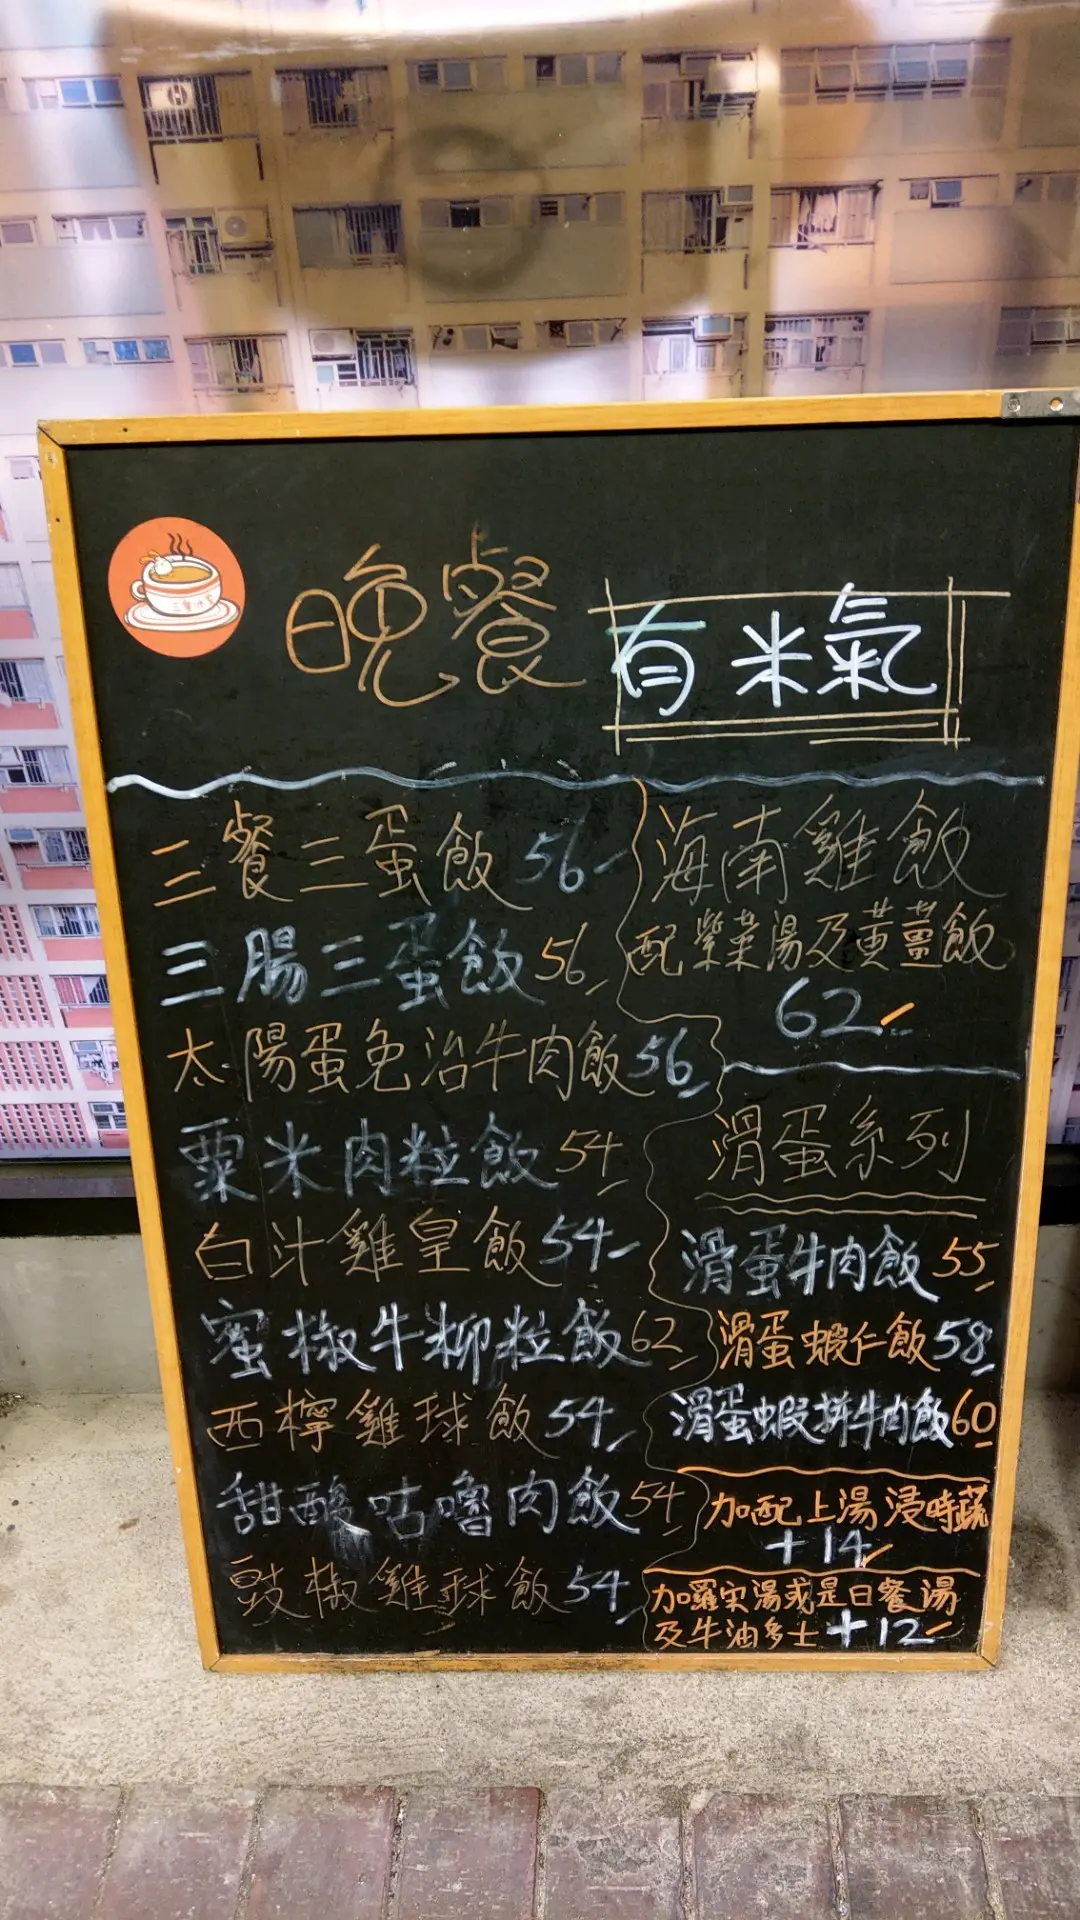 晚餐 有米氣
三餐三蛋飯 56
三腸三蛋飯 56
太陽蛋免治牛肉飯 56
粟米肉粒飯 54
白汁雞皇飯 54
蜜椒牛柳粒飯 62
西檸雞球飯 54
甜酸咕嚕肉飯 54
豉椒雞球飯 54
海南雞飯
配紫菜湯及黃薑飯
62
滑蛋系列
滑蛋牛肉飯 55
滑蛋蝦仁飯 58
滑蛋蝦拼牛肉飯 60
加配上湯浸時蔬
+14
加羅宋湯或是日餐湯
及牛油多士 +12